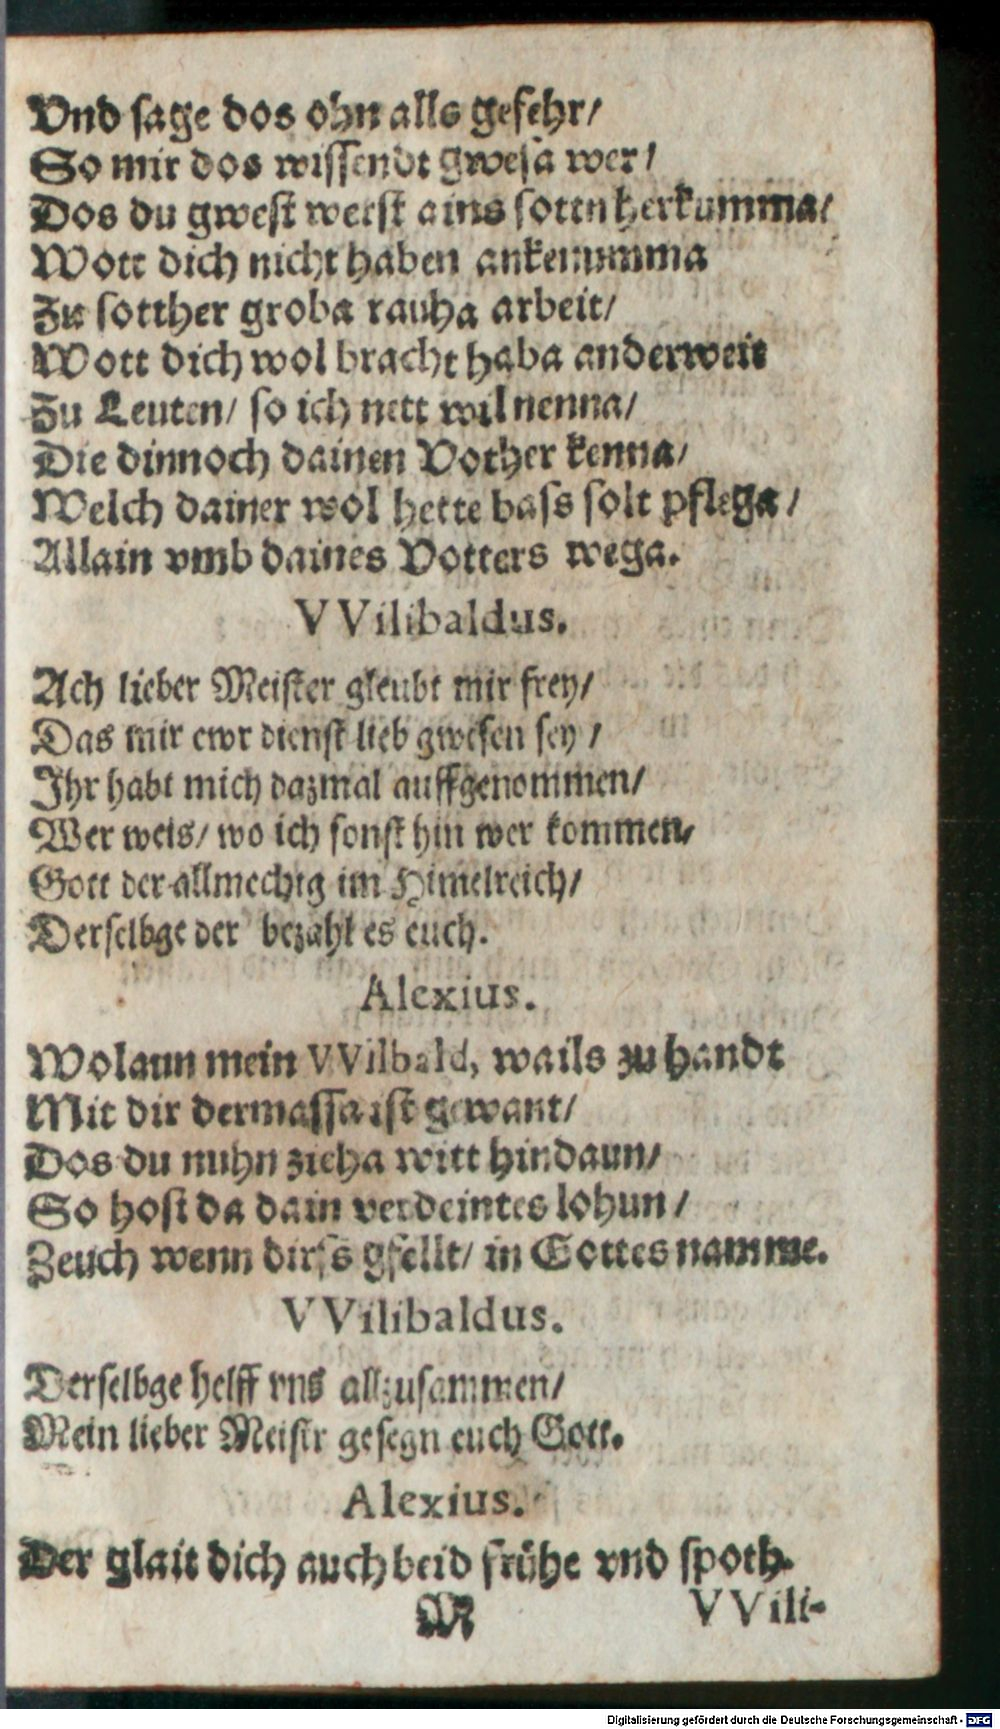 Vnd sage dos ohn alls gefehr/
So mir dos wissendt gwesa wer/
Dos du gwest werst ains sottn herkumma/
Wott dich nicht haben ankenumma
Zu sotther groba rauha arbeit/
Wott dich wol bracht haba anderweit
Zu Leuten/ so ich nett wil nenna/
Die dinnoch dainen Vother kenna/
Welch dainer wol hette bass solt pflega/
Allain vmb daines Votters wega.
VVilibaldus.
Ach lieber Meister gleubt mir frey/
Das mir ewr dienst lieb gwesen sey/
Ihr habt mich dazmal auffgenommen/
Wer weis/ wo ich sonst hin wer kommen/
Gott der allmechtg im Himelreich/
Derselbge der bezahl es euch.
Alexius.
Wolaun mein VVilbald, wails zu handt
Mit dir dermassa ist gewant/
Dos du nuhn zieha witt hindaun/
So host da dain verdeintes lohun/
Zeuch wenn dirss gfellt/ in Gottes namme.
VVilibaldus.
Derselbge helff vns allzusammen/
Mein lieber Meistr gesegn euch Gott.
Alexius.
Der glait dich auch beid frühe vnd spoth.
M VVili-
Digitalisierung gefördert durch die Deutsche Forschungsgemeinschaft - DFG